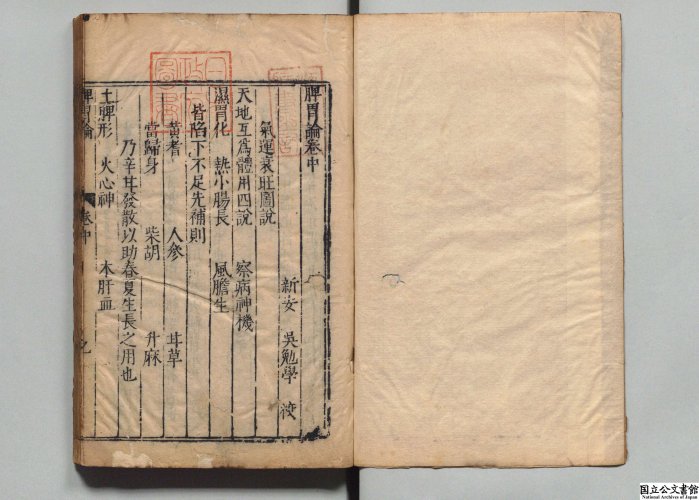 脾胃論卷中
新安 吳勉學 校
氣運衰旺圖說
天地互爲體用四說 察病神機
濕胃化 熱小腸長 風膽生
皆陷下不足先補則
黃耆 人參 甘草
當歸身 柴胡 升麻
乃辛甘發散以助春夏生長之用也
土脾形 火心神 木肝血
脾胃論 卷中
国立公文書館
National Archives of Japan